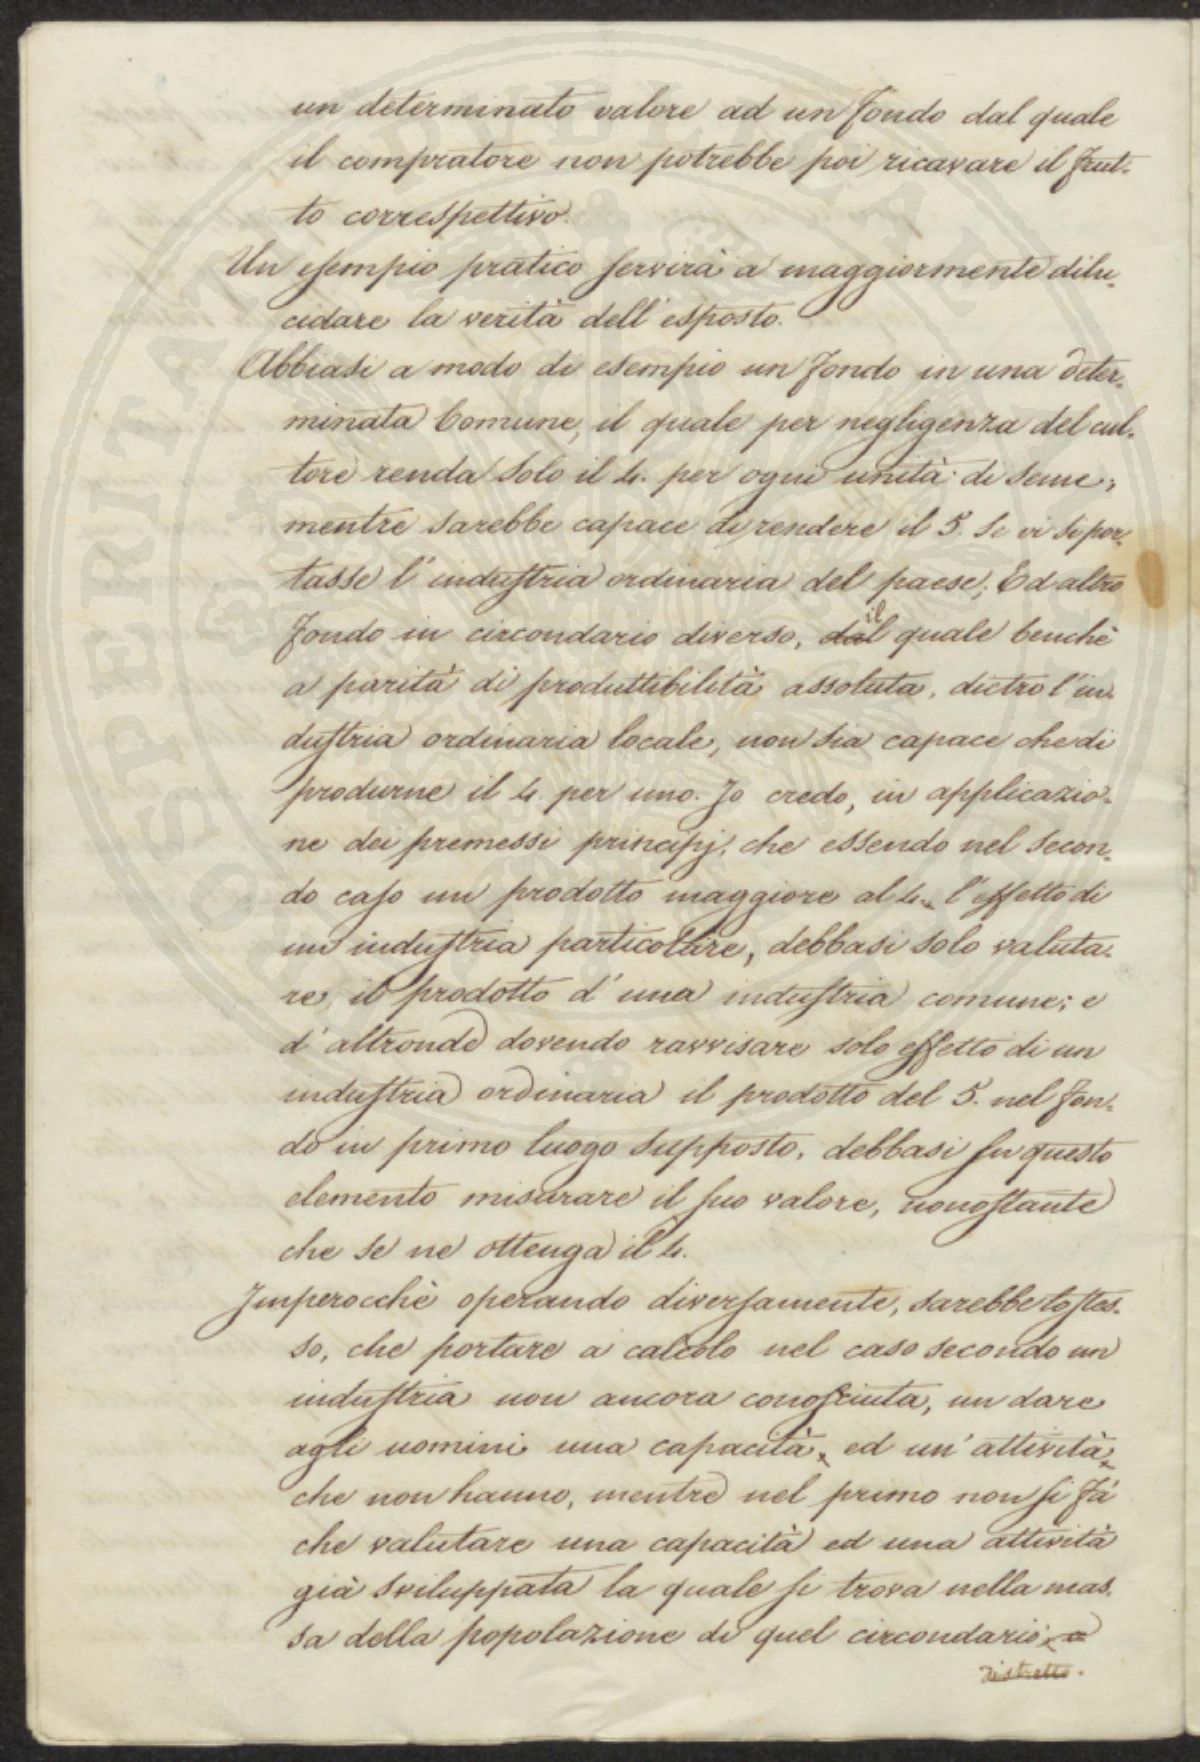 un determinato valore ad un fondo dal quale
il compratore non potrebbe poi ricavare il frut-
to correspettivo.
Un esempio pratico servirà a maggiormente dilu-
cidare la verità dell'esposto.
Abbiasi a modo di esempio un fondo in una deter-
minata Comune, il quale per negligenza del cul-
tore renda solo il 4. per ogni unità di seme;
mentre sarebbe capace di rendere il 5. se vi si por-
tasse l'industria ordinaria del paese; Ed altro
fondo in circondario diverso, dal il quale benchè
a parità di produttibilità assoluta, dietro l'in-
dustria ordinaria locale, non sia capace che di
produrne il 4. per uno. Io credo, in applicazio-
ne dei premessi principj, che essendo nel secon-
do caso un prodotto maggiore al 4. l'effetto di
un industria particolare, debbasi solo valuta-
re, il prodotto d'una industria comune; e
d'altronde dovendo ravvisare solo effetto di un
industria ordinaria il prodotto del 5. nel fon-
do in primo luogo supposto, debbasi su questo
elemento misurare il suo valore, nonostante
che se ne ottenga il 4.
Imperocchè operando diversamente, sarebbe lo stes-
so, che portare a calcolo nel caso secondo un
industria non ancora conosciuta, un dare
agli uomini una capacità, ed un'attività,
che non hanno, mentre nel primo non si fà
che valutare una capacità ed una attività
già sviluppata la quale si trova nella mas-
sa della popolazione di quel circondario, o
distretto.
PROSPERITATI PUBLICAE AUGENDAE